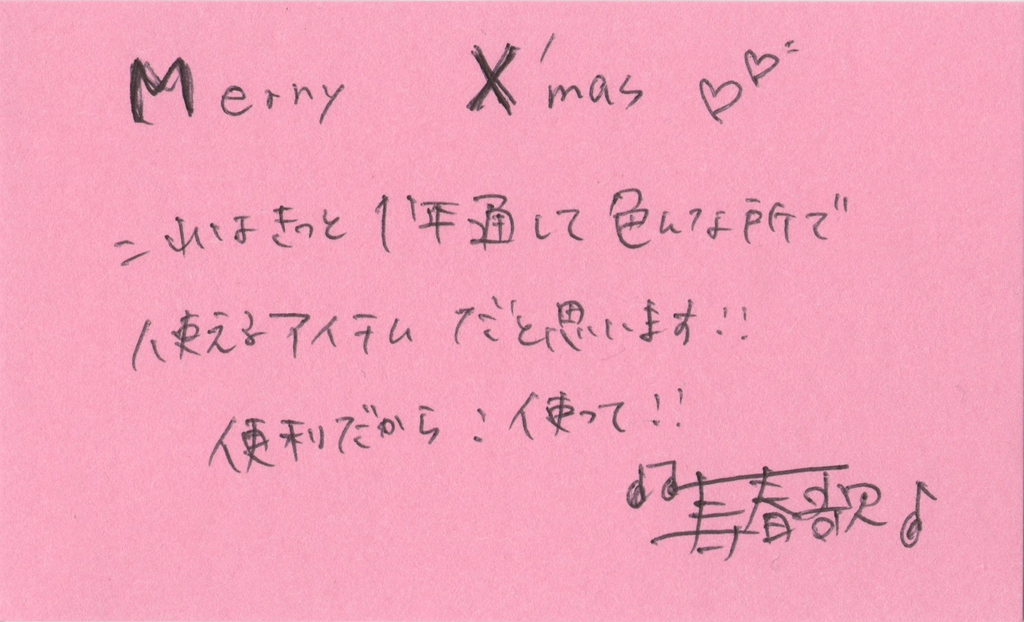 Merry X'mas ♡♡
これはきっと1年通して色んな所で
使えるアイテムだと思います!!
便利だから!使って!!
♫青春歌♪